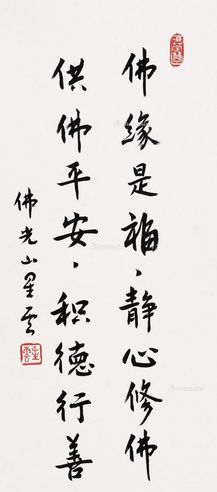 佛緣是福，静心修佛
供佛平安，积德行善
佛光山星云